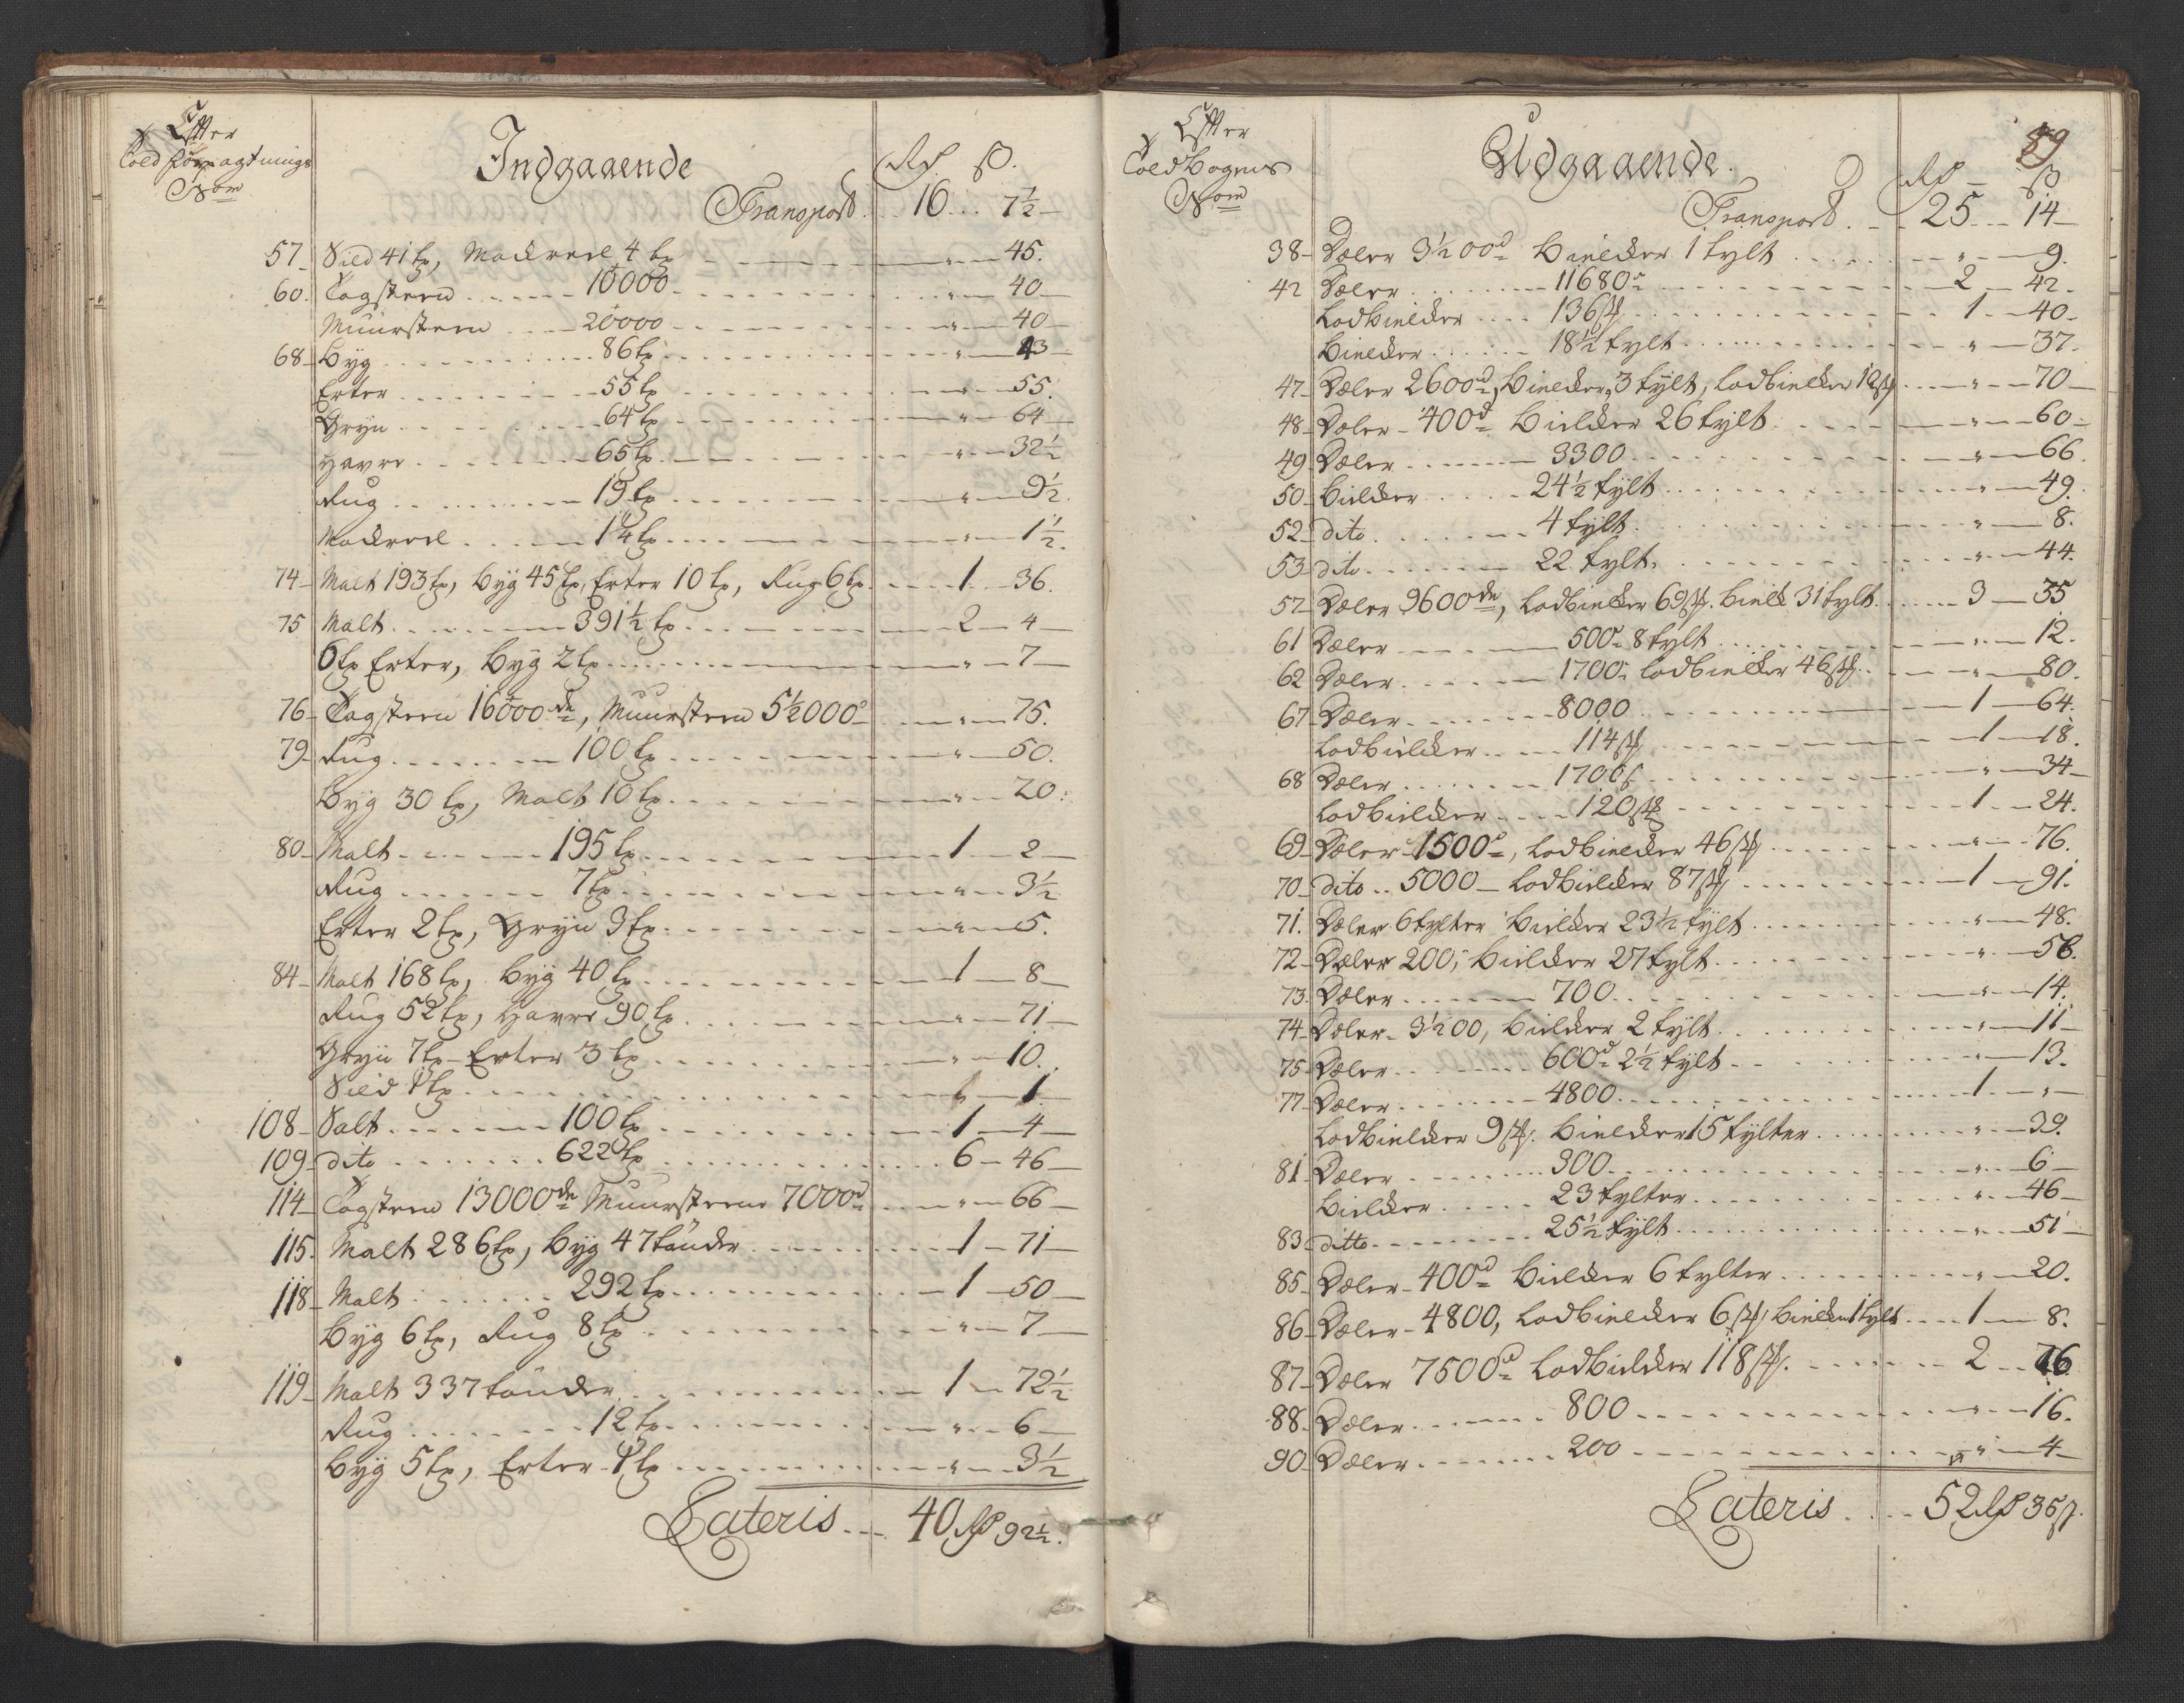 Efter
Told forpagtnings
Nom
Indgaaende
Rd. ß.
Transport 16 7½
57 Sild 41 tr, Mackrel 4 tr " 45.
60. Tagsteen 10000 " 40
Muursteen 20000 " 40
68 Byg 86 tr " 43
Erter 55 tr " 55.
Gryn 64 tr " 64
Havre 65 tr " 32½
Rug 19 tr " 9½
Mackrel 1¼ tr " 1½.
74 Malt 193 tr, Byg 45 tr, Erter 10 tr, Rug 6 tr 1 36.
75 Malt 391½ tr 2 4
6 tr Erter, Byg 2 tr " 7
76 Tagsteen 16000 de, Muursteen 5½000 " 75.
79 Rug 100 tr " 50.
Byg 30 tr, Malt 10 tr " 20.
80 Malt 195 tr 1 2
Rug 7 tr " 3½
Erter 2 tr, Gryn 3 tr " 5.
84 Malt 168 tr, Byg 40 tr 1 8
Rug 52 tr, Havre 90 tr " 71
Gryn 7 tr Erter 3 tr " 10.
Sild 1 tr " 1
108 Salt 100 tr 1 4
109 dito 622 tr 6 46
114 Tagsteen 13000 de Muursteene 7000 d " 66
115. Malt 286 tr, Byg 47 tönder 1 71
118 Malt 292 tr 1 50
Byg 6 tr, Rug 8 tr " 7
119 Malt 337 tönder 1 72½
Rug 12 tr " 6
Byg 5 tr, Erter 1 tr " 3½
Lateris 40 Rd 92½.
Efter
Told bogens
Nom
Udgaaende.
89
Rd ß
Transport 25 14
38 Dæler 3½00 d Bielcker 1 tylt " 9.
42 Dæler 11680 2 42.
Lodbielcker 136 st 1 40
Bielcker 18½ tylt " 37.
47 Dæler 2600 d, Bielcker 3 tylt, Lodbielcker 12 st " 70
48 Dæler 400 d Bielcker 26 tylt " 60
49 Dæler 3300 " 66.
50 Bielcker 24½ tylt " 49.
52 dito 4 tylt " 8.
53 dito 22 tylt. " 44.
57 Dæler 9600 de, Lodbielcker 69 st. Bielck 31 tylt 3 35
61 Dæler 500 8 tylt " 12.
62 Dæler 1700 Lodbielcker 46 st " 80.
67 Dæler 8000 1 64.
Lodbielcker 114 st 1 18.
68 Dæler 1700 " 34
Lodbielcker 120 st 1 24.
69 Dæler 1500, Lodbielcker 46 st " 76.
70 dito 5000 Lodbielcker 87 st 1 91.
71. Dæler 6 tylter Bielcker 23½ tylt " 48.
72 Dæler 200, Bielcker 27 tylt " 58.
73. Dæler 700 " 14.
74 Dæler 3½00, Bielcker 2 tylt " 11
75 Dæler 600 d 2½ tylt " 13.
77 Dæler 4800 1 "
Lodbielcker 9 st. Bielcker 15 tylter " 39.
81 Dæler 300 " 6
Bielcker 23 tylter " 46
83 ditto 25½ tylt " 51
85 Dæler 400 d Bielcker 6 tylter " 20.
86 Dæler 4800, Lodbielcker 6 st, Bielcker 1 tylt 1 8.
87 Dæler 7500 d Lodbielcker 118 st. 2 76
88 Dæler 800 " 16.
90 Dæler 200 " 4
Lateris 52 Rd 36 ß.